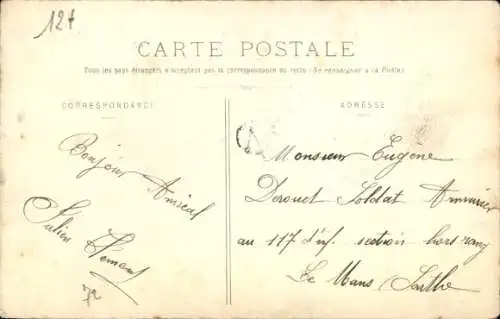 127
CARTE POSTALE
Tous les pays étrangers n'acceptent pas la correspondance au recto (Se renseigner à la Poste)
CORRESPONDANCE
ADRESSE
Bonjour Amical
Julien Clément
72
A
Monsieur Eugène
Derouet Soldat Armurier
au 117 d'inf. section hors rang
Le Mans Sarthe